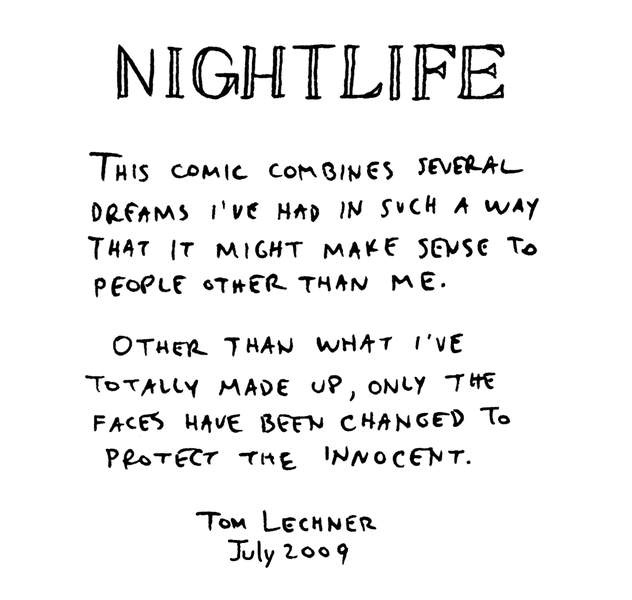 NIGHTLIFE
THIS COMIC COMBINES SEVERAL
DREAMS I'VE HAD IN SUCH A WAY
THAT IT MIGHT MAKE SENSE TO
PEOPLE OTHER THAN ME.
OTHER THAN WHAT I'VE
TOTALLY MADE UP, ONLY THE
FACES HAVE BEEN CHANGED TO
PROTECT THE INNOCENT.
TOM LECHNER
July 2009